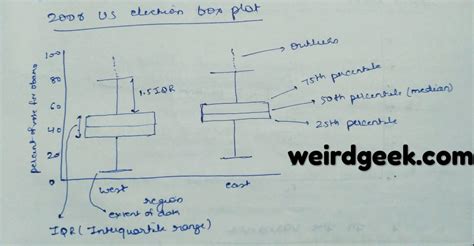 2008 US election box plot
outliers
100
80
60
40
20
0
percent of vote for obama
1.5IQR
75th percentile
50th percentile (median)
25th percentile
weirdgeek.com
west
east
region
extent of data
IQR (Interquartile range)